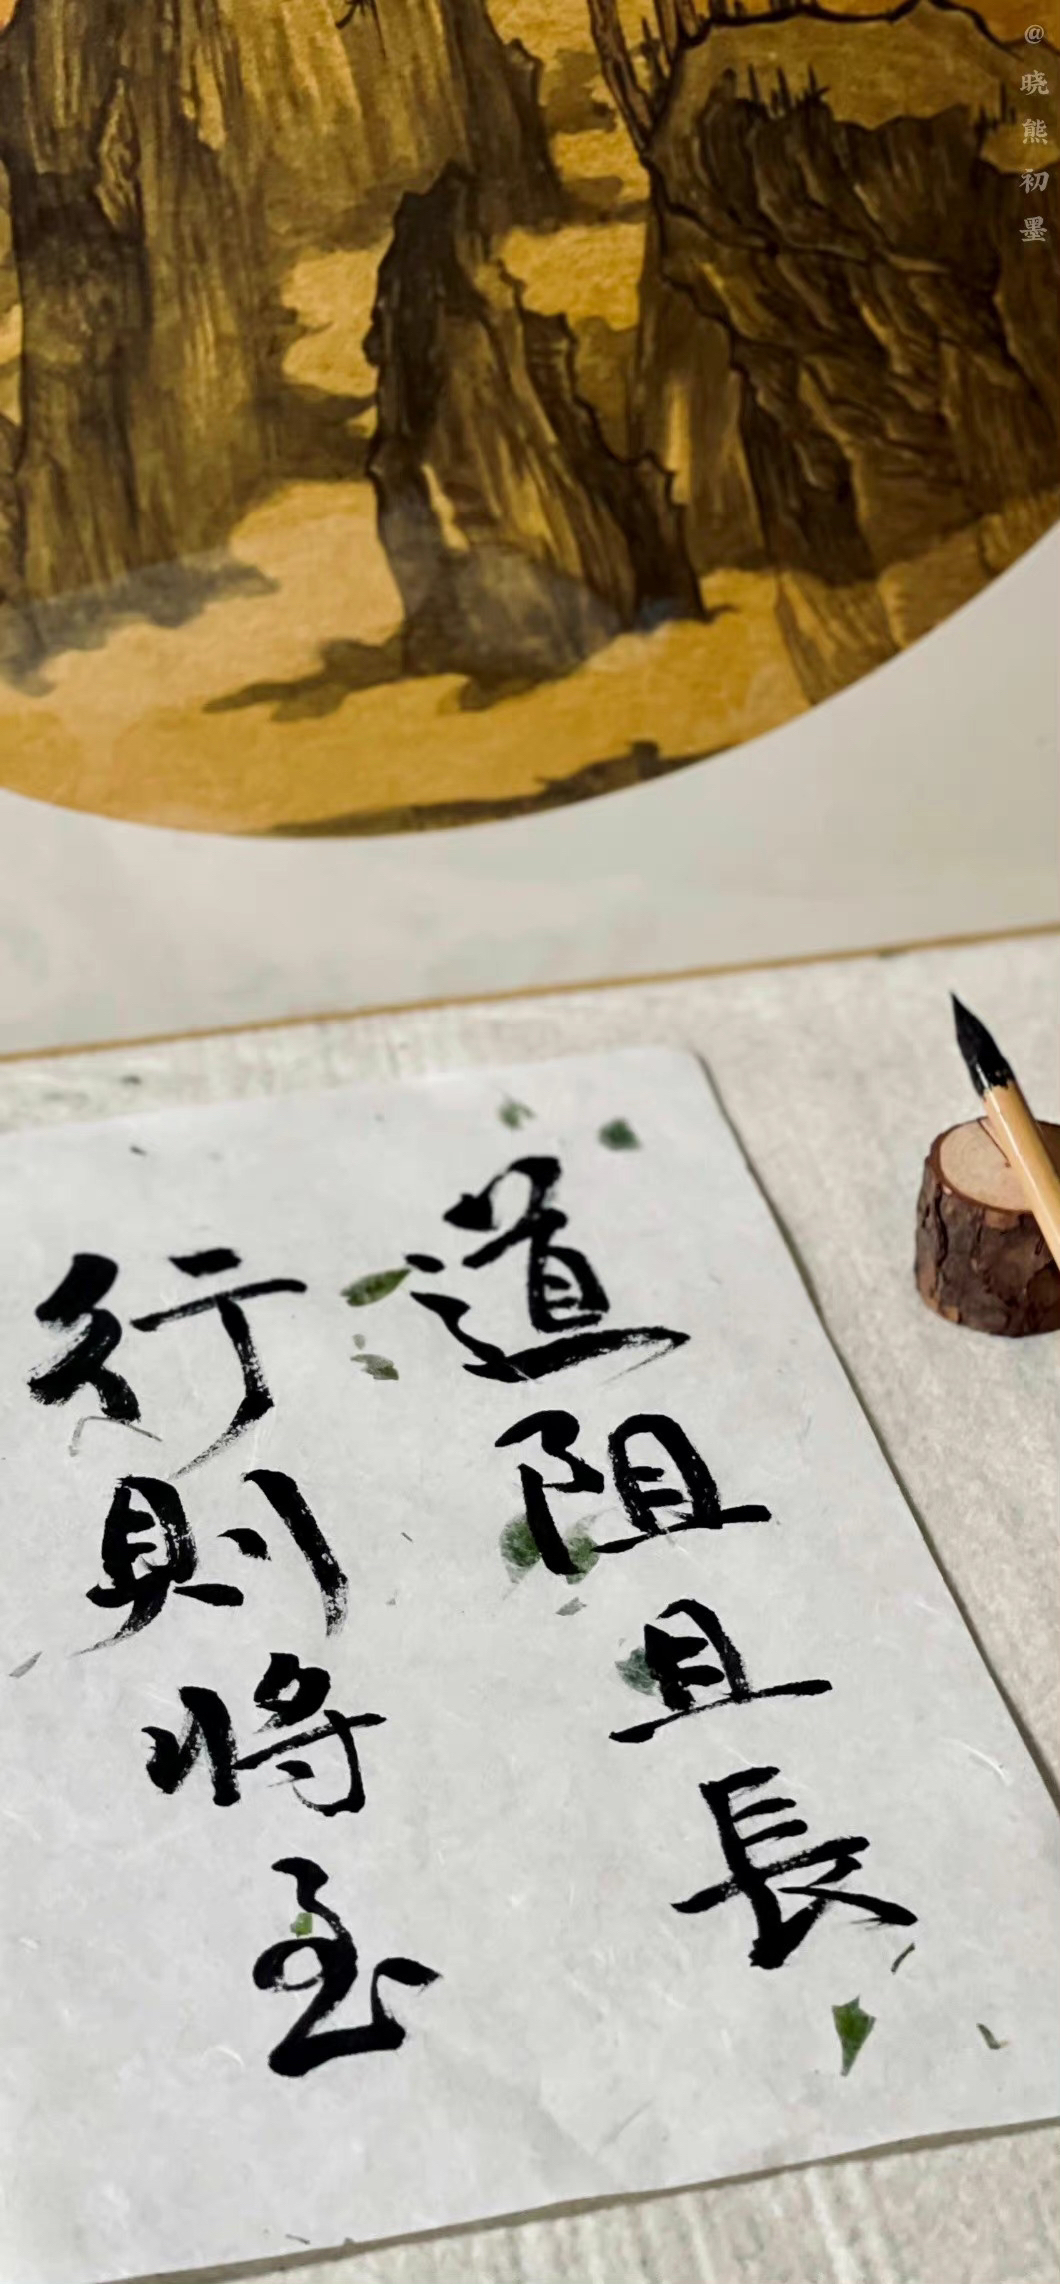 道阻且長
行則將至
@晓熊初墨